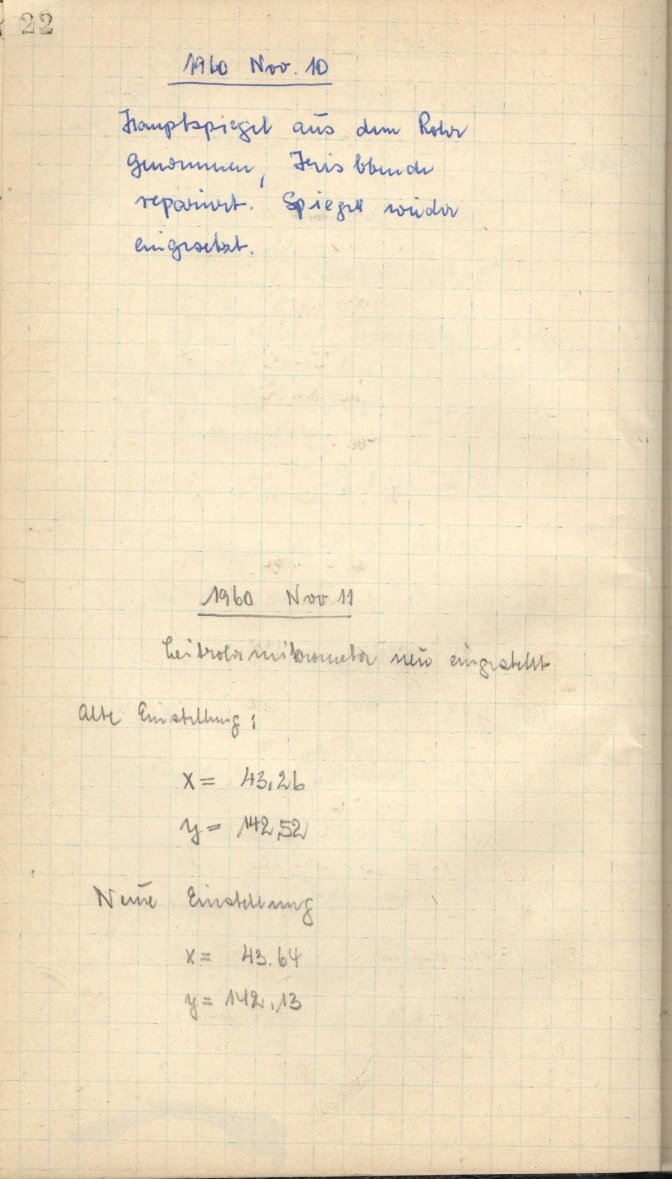 22
1960 Nov. 10
Hauptspiegel aus dem Rohr
genommen, Irisblende
repariert. Spiegel wieder
eingesetzt.
1960 Nov 11
Leitrohrmikrometer neu eingestellt
Alte Einstellung:
x = 43,26
y = 142,52
Neue Einstellung
x = 43.64
y = 142,13